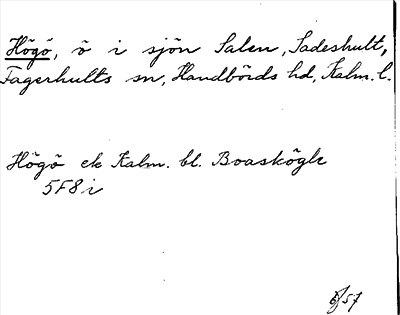 Högö, ö i sjön Salen, Sadeshult,
Fagerhults sn, Handbörds hd, Kalm. l.
Högö ek Kalm. bl. Boaskögle
5F8i
6/57